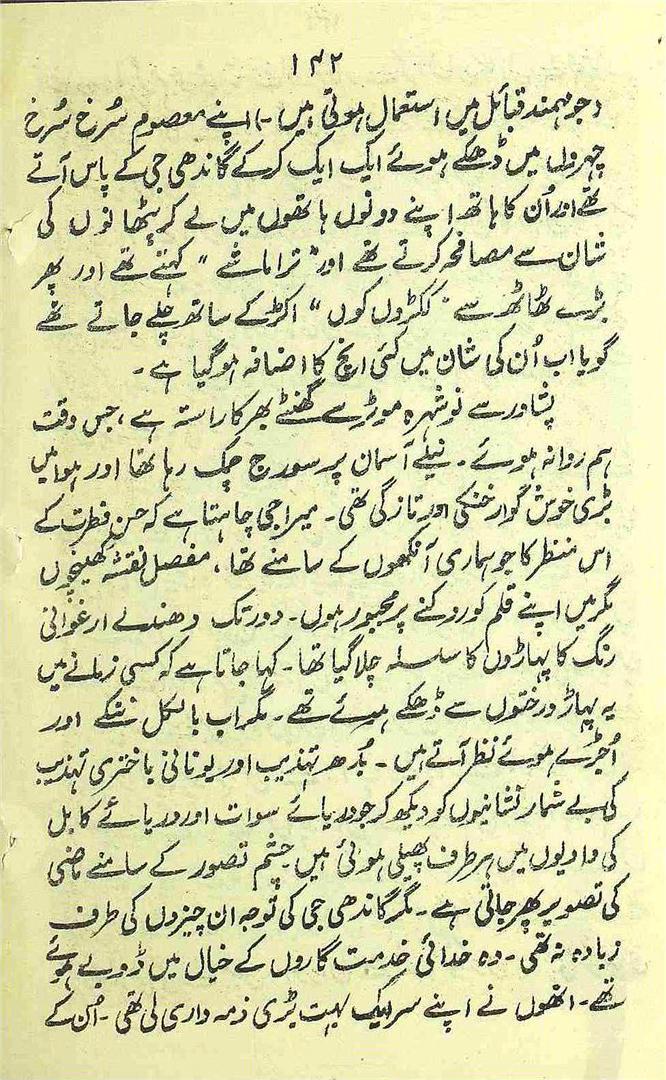 ۱۴۲
(جو مہمند قبائل میں استعمال ہوتی ہیں۔) اپنے معصوم سُرخ سُرخ
چہروں میں ڈھکے ہوئے ایک ایک کرکے گاندھی جی کے پاس آتے
تھے اور اُن کا ہاتھ اپنے دونوں ہاتھوں میں لے کر پٹھانوں کی
شان سے مصافحہ کرتے تھے اور "تراماشے" کہتے تھے اور پھر
بڑے ٹھاٹھ سے "ککڑوں کوں" اکڑ کے ساتھ چلے جاتے تھے
گویا اب اُن کی شان میں کئی انچ کا اضافہ ہوگیا ہے۔
پشاور سے نوشہرہ موٹر سے گھنٹے بھر کا راستہ ہے، جس وقت
ہم روانہ ہوئے۔ نیلے آسمان پر سورج چمک رہا تھا اور ہوا میں
بڑی خوش گوار خنکی اور تازگی تھی۔ میرا جی چاہتا ہے کہ حسنِ فطرت کے
اس منظر کا جو ہماری آنکھوں کے سامنے تھا، مفصل نقشہ کھینچوں
مگر میں اپنے قلم کو روکنے پر مجبور ہوں۔ دور تک دھندلے ارغوانی
رنگ کا پہاڑوں کا سلسلہ چلا گیا تھا۔ کہا جاتا ہے کہ کسی زمانے میں
یہ پہاڑ درختوں سے ڈھکے ہوئے تھے۔ مگر اب بالکل ننگے اور
اُجڑے ہوئے نظر آتے ہیں۔ بُدھ تہذیب اور یونانی باختری تہذیب
کی بے شمار نشانیوں کو دیکھ کر جو دریائے سوات اور دریائے کابل
کی وادیوں میں ہر طرف پھیلی ہوئی ہیں چشم تصور کے سامنے ماضی
کی تصویر پھر جاتی ہے۔ مگر گاندھی جی کی توجہ ان چیزوں کی طرف
زیادہ نہ تھی۔ وہ خدائی خدمت گاروں کے خیال میں ڈوبے ہوئے
تھے۔ انھوں نے اپنے سر ایک بہت بڑی ذمہ داری لی تھی۔ اُن کے